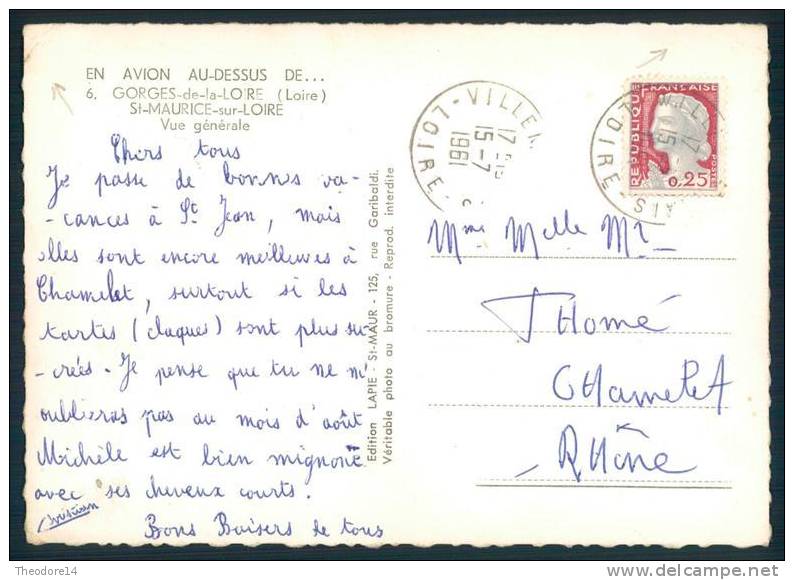 EN AVION AU-DESSUS DE...
6. GORGES-de-la-LOIRE (Loire)
St-MAURICE-sur-LOIRE
Vue générale
Chers tous
Je passe de bonnes va-
-cances à St Jean, mais
elles sont encore meilleures à
Chamelet, surtout si les
tartes (claques) sont plus su-
-crées. Je pense que tu ne m'
oublieras pas au mois d'août
Michèle est bien mignone
avec ses cheveux courts.
Christian
Bons Baisers de tous
Edition LAPIE - St-MAUR - 125, rue Garibaldi.
Véritable photo au bromure - Reprod. interdite
LOIRE
17
15-7
1961
REPUBLIQUE
FRANÇAISE
0,25
POSTES
LOIRE
Mme Melle Mr
THomé
CHamelet
RHône
Theodore14
delcampe.net